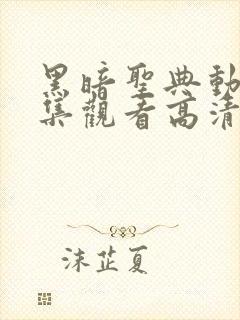 黑暗聖典動
集觀看高清
沫芷夏